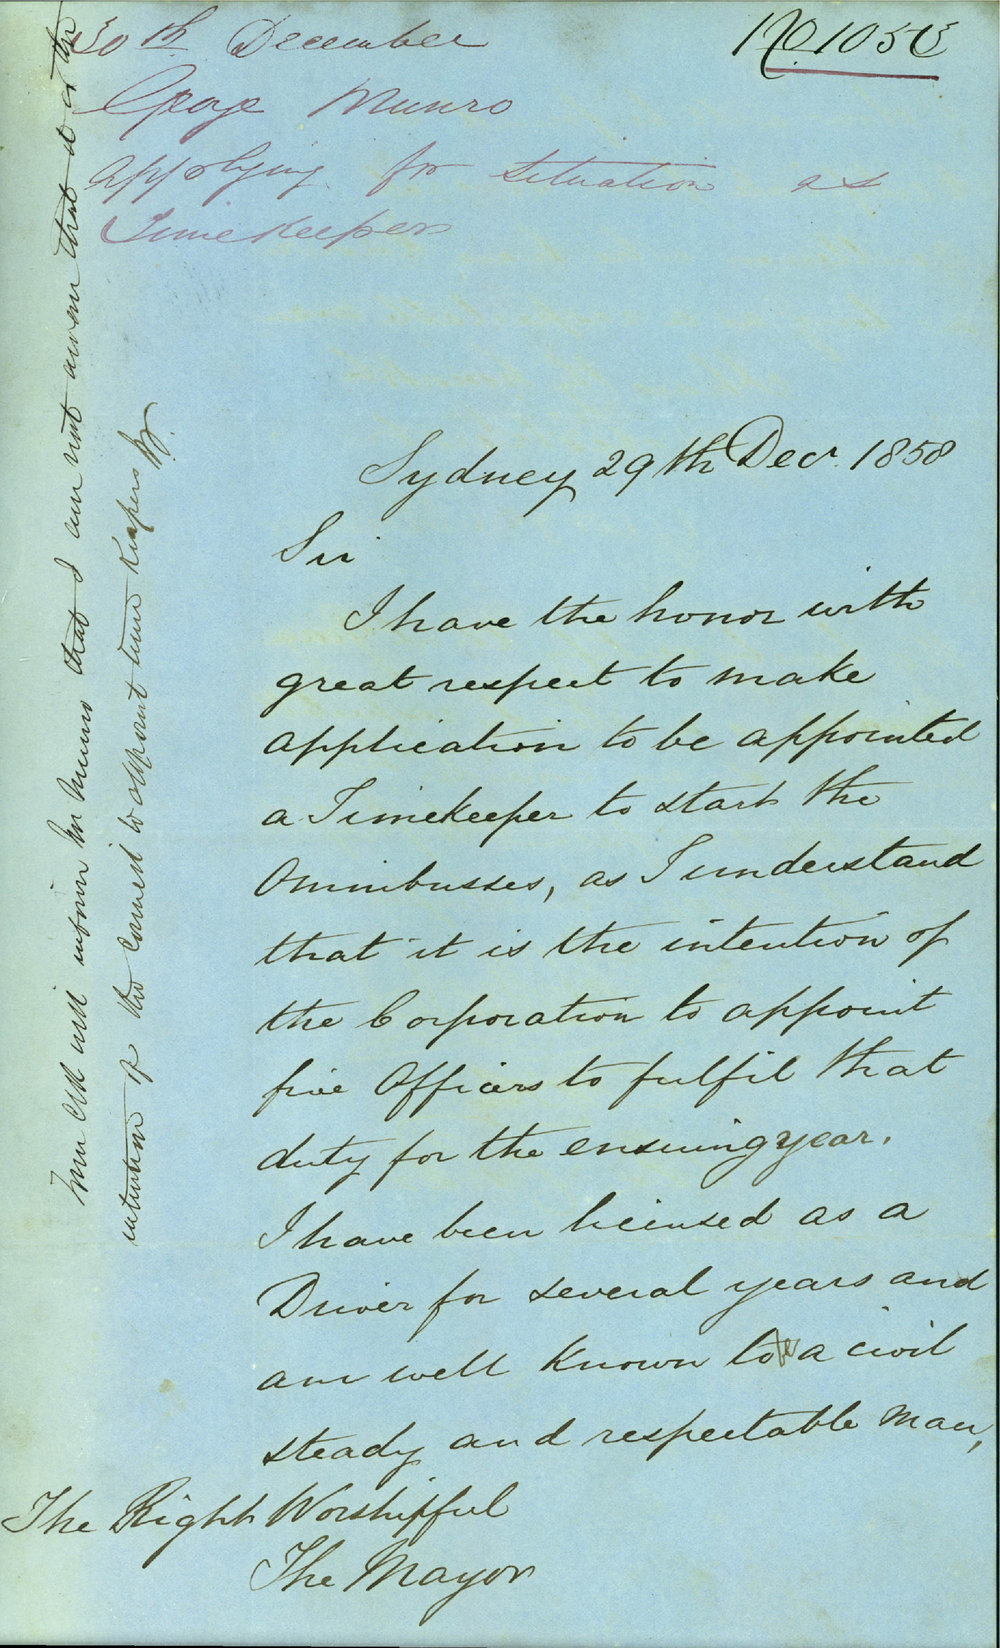 30th December
No 1058
George Munro
applying for situation as
Timekeeper
Sydney 29th Decr. 1858
Sir
I have the honor with
great respect to make
application to be appointed
a Timekeeper to start the
Omnibusses, as I understand
that it is the intention of
the Corporation to appoint
five Officers to fulfil that
duty for the ensuing year.
I have been licensed as a
Driver for several years and
am well known to be a civil
steady and respectable man,
The Right Worshipful
The Mayor
will inform Mr Munro that I am not aware that it is the
intention of the Council to appoint time keepers